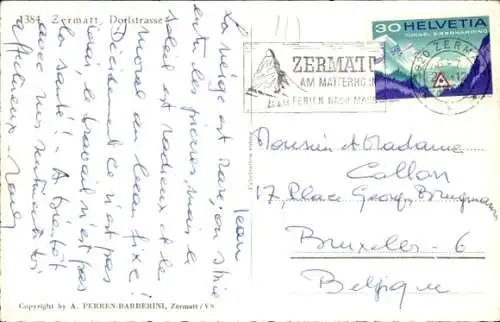 1384 Zermatt, Dorfstrasse
Jean
La neige est rare; on skie
entre les pierres mais le
soleil est radieux et le
moral au beau fixe!
Décidément ce n'est pas
ici, le travail n'est pas
la santé! - A bientôt
avec mes sentiments
affectueux
HELVETIA
30
TUNNEL S. BERNARDINO
3920 ZERMATT
ZERMATT
AM MATTERHORN
FERIEN NACH MASS
Monsieur et Madame
Collon
17, Place Georg. Brugmann
Bruxelles - 6
Belgique
Copyright by A. PERREN-BARBERINI, Zermatt/VS